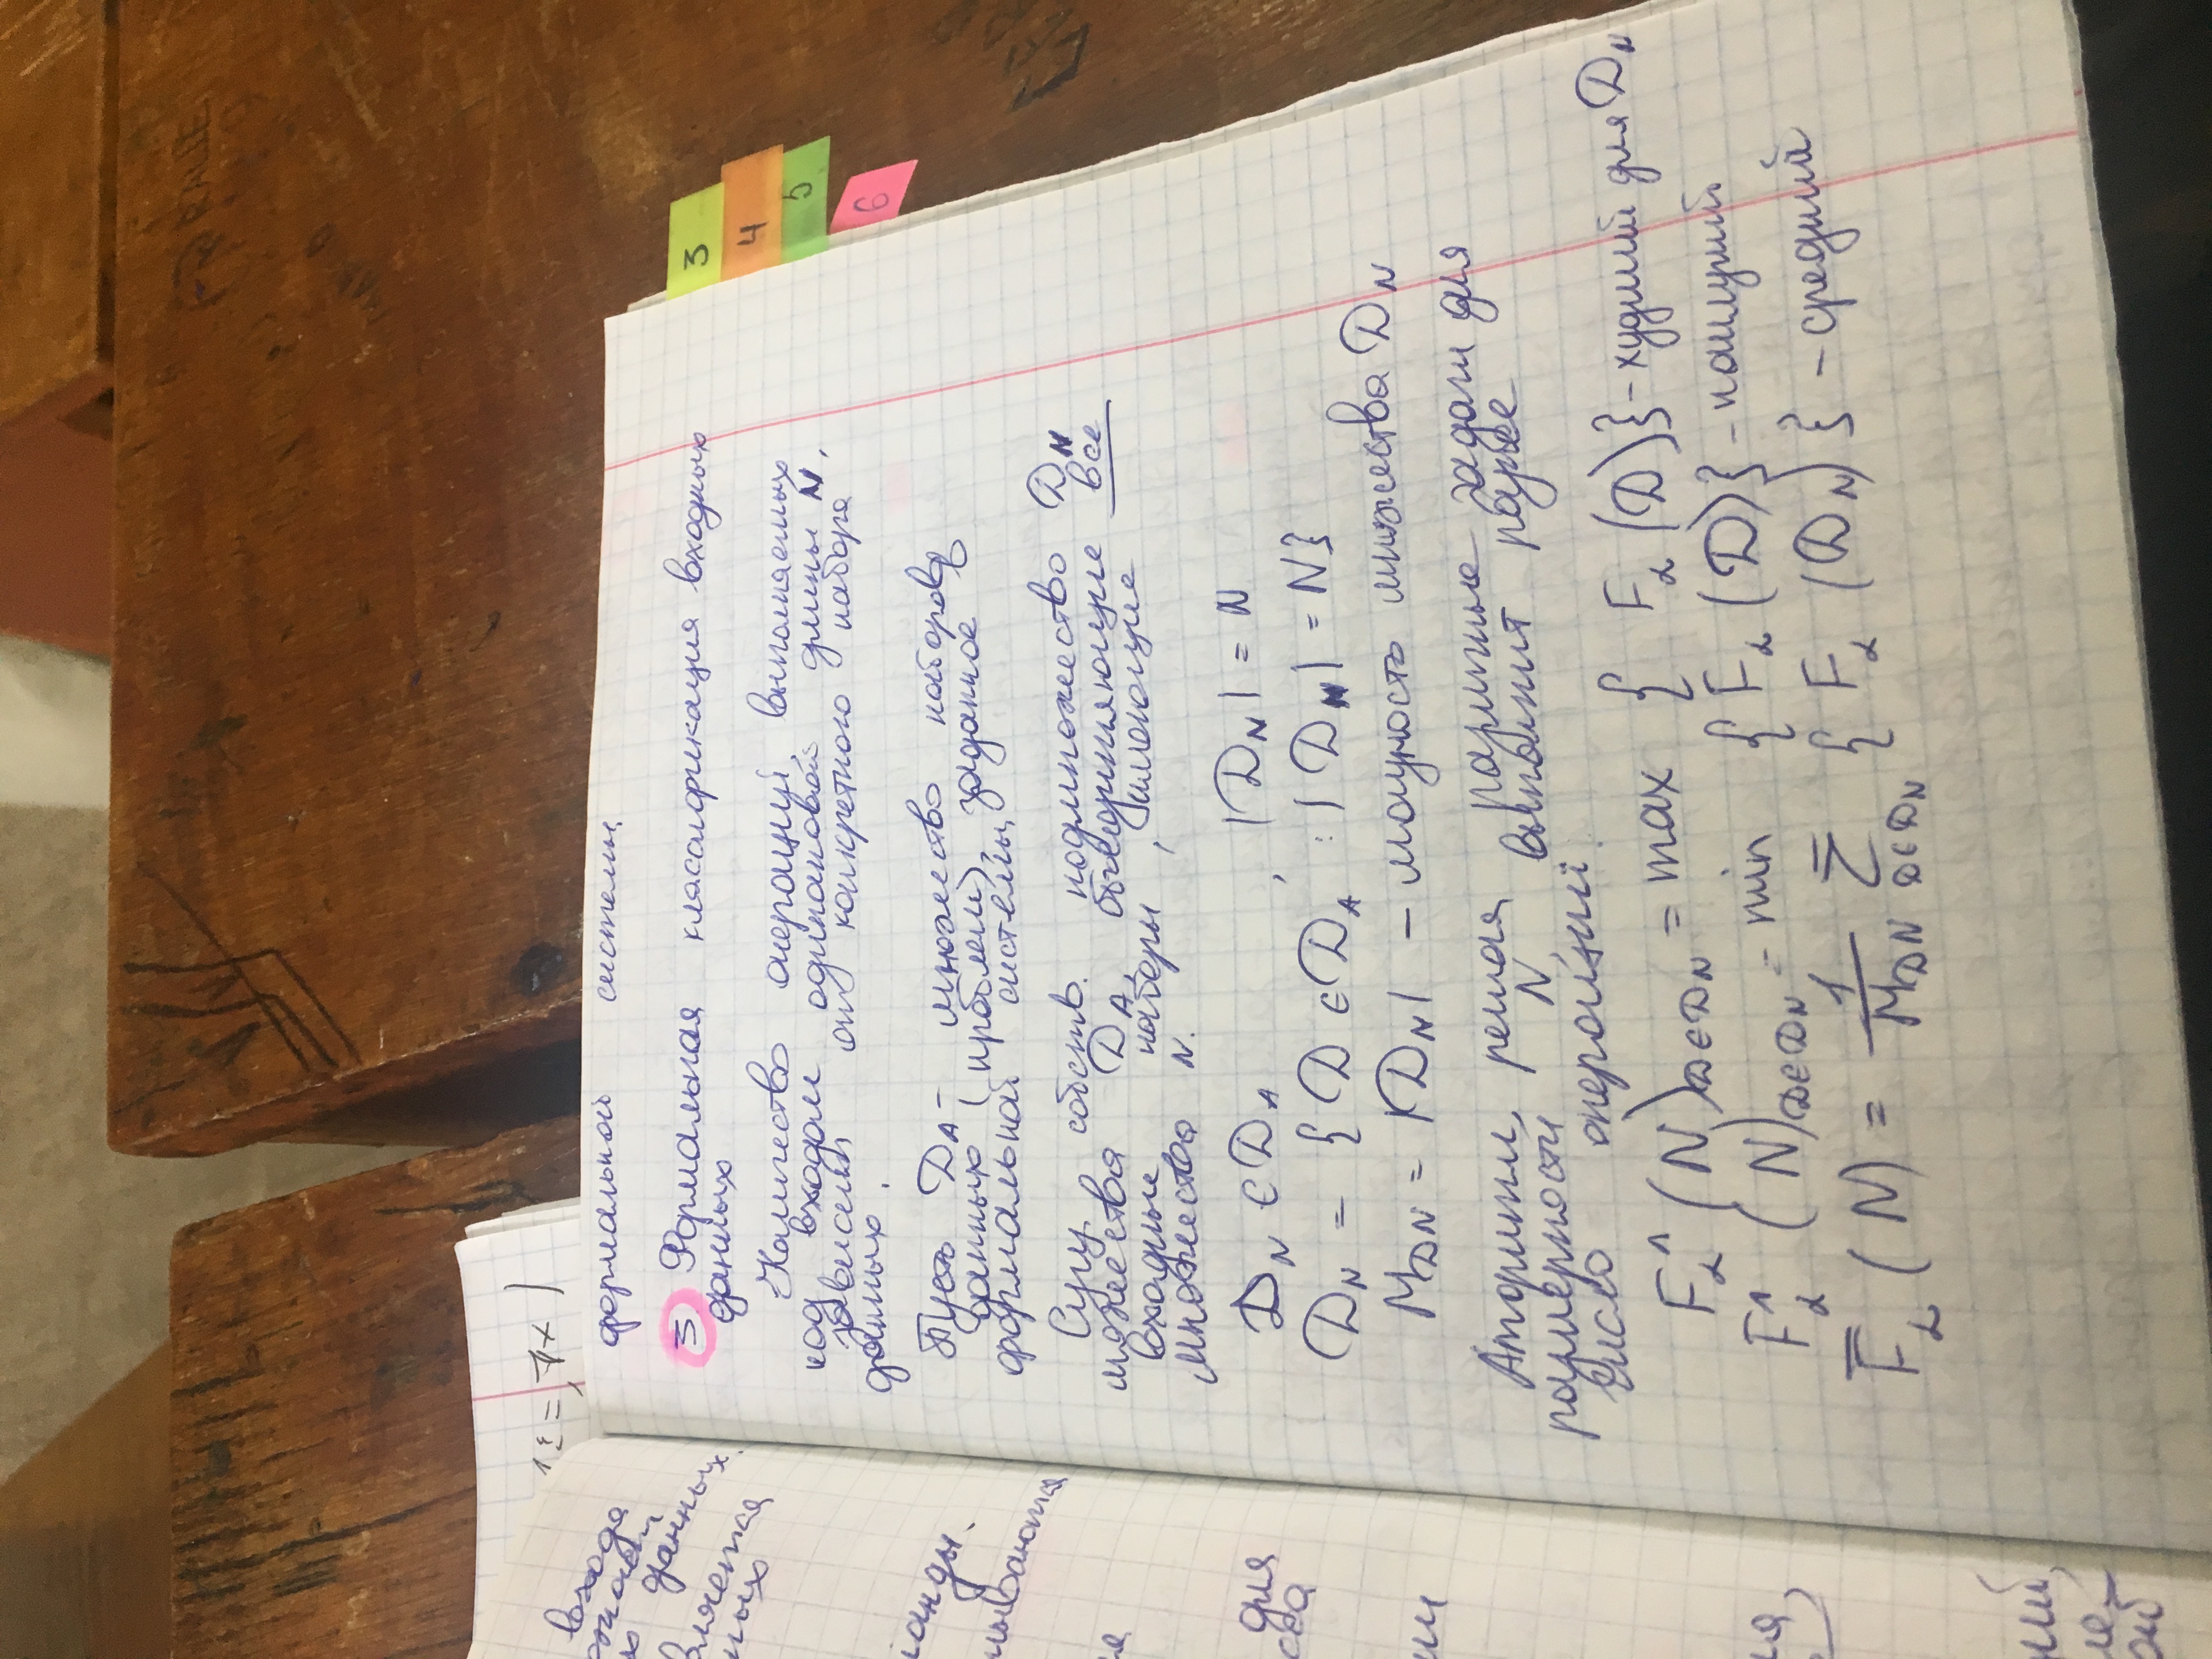 входа
данных.
вляется
ных
анды.
мываются
для
сса
формальной системы
3 Формальная классификация входных
данных
Количество операций, выполняемых
под входом одинаковой длины N,
зависит от конкретного набора
данных.
Пусть D_A - множество наборов
данных (проблем), заданное
формальной системы
Сущ. собств. подмножество D_N
множества D_A, объединяющие все
входные наборы, имеющие
множество N.
D_N ∈ D_A , |D_N| = N
D_N = { D ∈ D_A : |D_N| = N}
M_DN = |D_N| - мощность множества D_N
Алгоритм, решая различные задачи для
размерности N, выполнит разное
число операций.
F_α^ (N)_D∈D_N = max { F_α (D)} - худший для D_N
F_α^ (N)_D∈D_N = min { F_α (D)} - наилучший
F̅_α (N) = 1/M_DN Σ_D∈D_N { F_α (D_N) } - средний
3
4
5
6